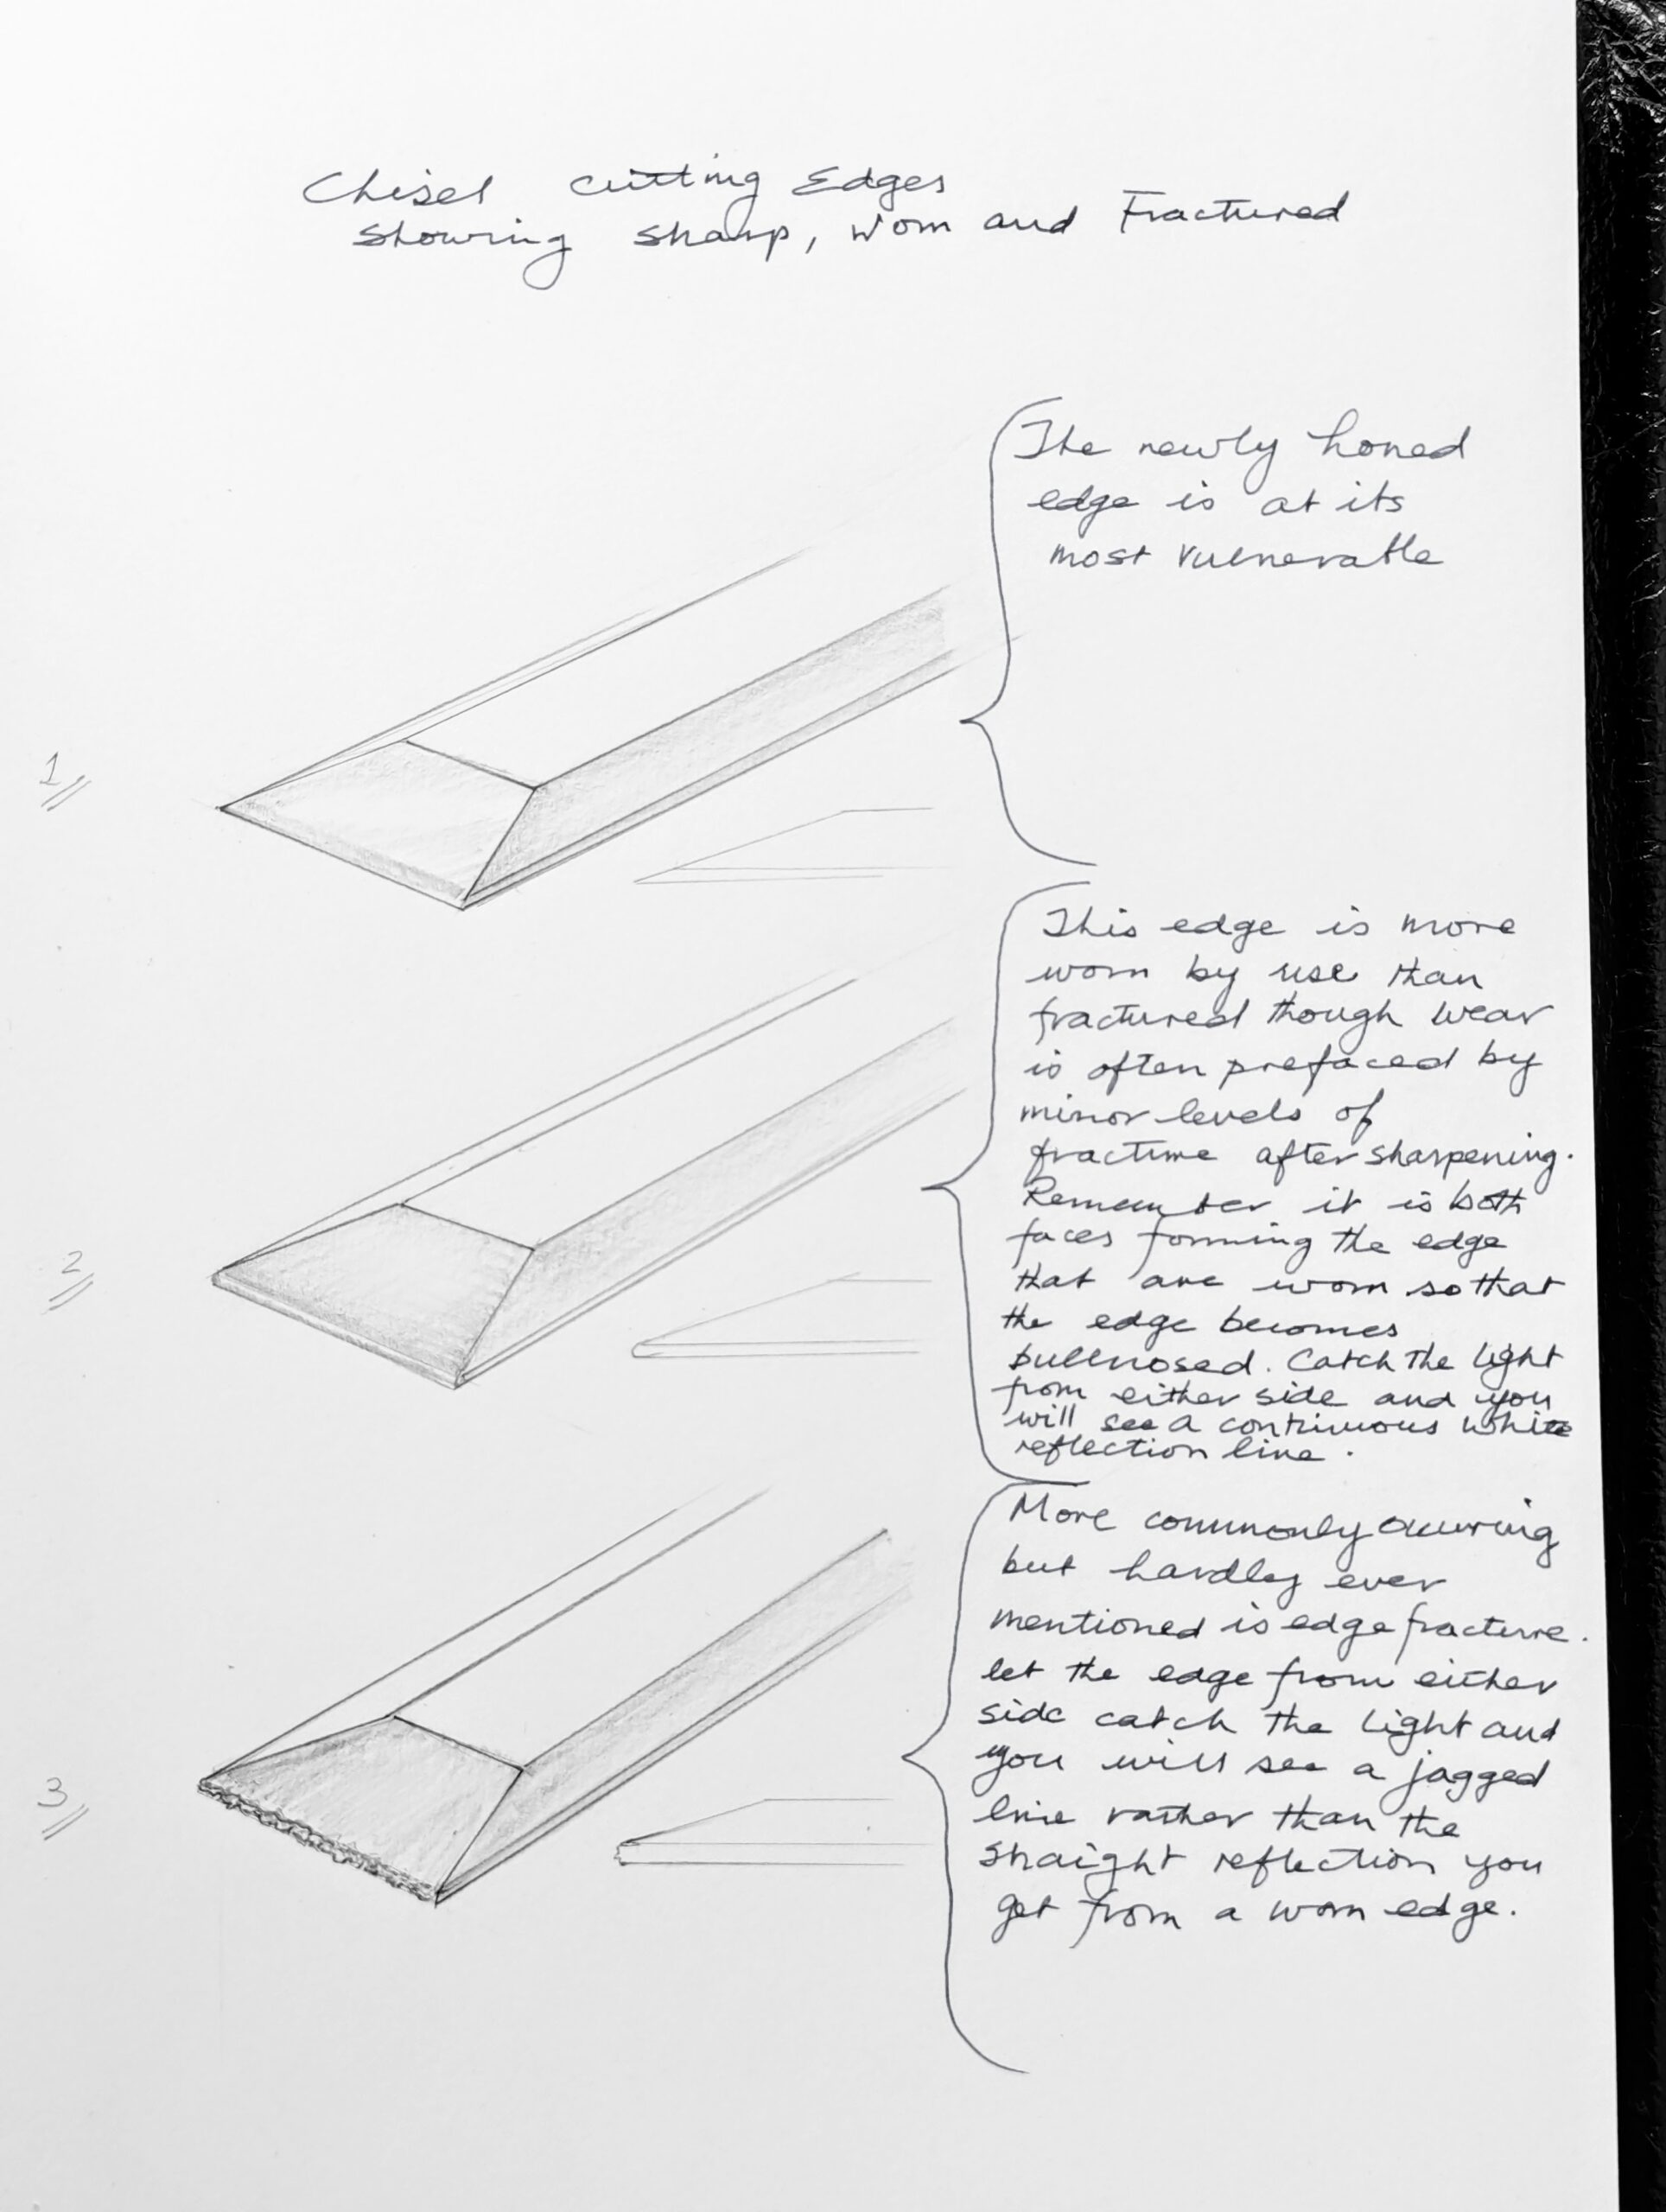 Chisel cutting Edges
showing sharp, worn and Fractured
The newly honed
edge is at its
most vulnerable
1
This edge is more
worn by use than
fractured though wear
is often prefaced by
minor levels of
fracture after sharpening.
Remember it is both
faces forming the edge
that are worn so that
the edge becomes
bullnosed. Catch the light
from either side and you
will see a continuous white
reflection line.
2
More commonly occuring
but hardley ever
mentioned is edge fracture.
let the edge from either
side catch the light and
you will see a jagged
line rather than the
straight reflection you
get from a worn edge.
3